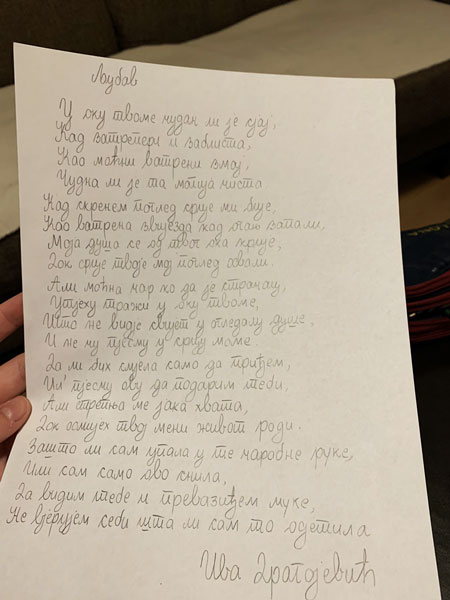 Љубав
У оку твоме чудан ли је сјај,
Кад затрепери и заблиста,
Као моћни ватрени змај,
Чудна ли је та магија чиста.
Кад скренем поглед срце ми бије,
Као ватрена звијезда кад огањ запали,
Моја душа се од твог ока крије,
Док срце твоје мој поглед
Али моћна чар ко да је странац,
Утјеху тражи у оку твоме,
Што не видје свијет у огледалу душе,
И не чу пјесму у срцу моме.
Да ли бих смјела само да приђем,
Ил' пјесму ову да подарим теби,
Али трепња ме јака хвата,
Док осмјех твој мени живот роди.
Зашто ли сам упала у те чаробне руке,
Или сам само ово снила,
Да видим тебе и превазиђем муке,
Не вјерујем себи шта ли сам то
Ива Драгојевић